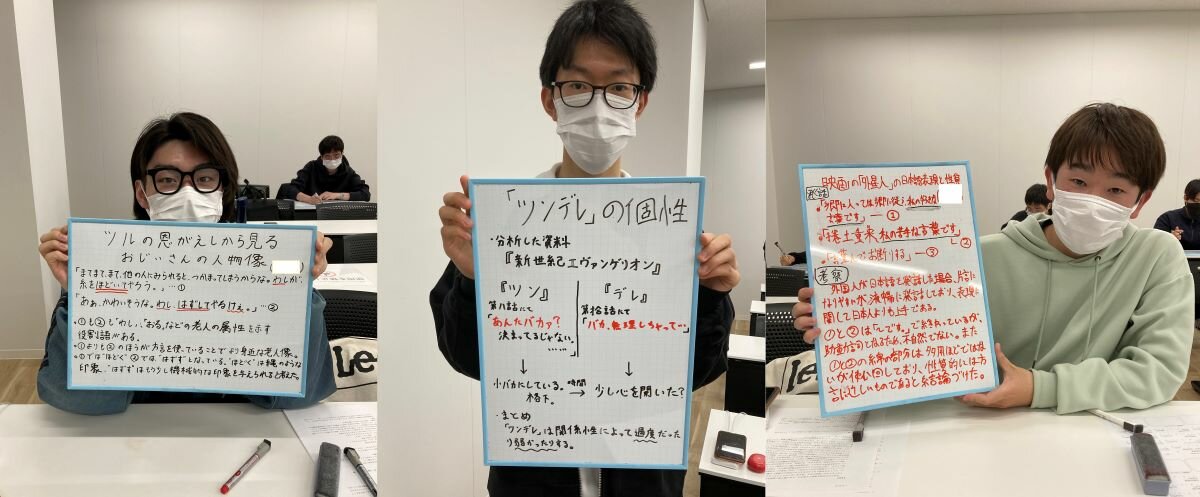 ツルの恩がえしから見る
おじいさんの人物像
「まてまて、まて、他の人にみられると、つかまってしまうからな。わしが、
糸をほどいてやろう。」…①
「おぉ、かわいそうな。わし、はずしてやるけぇ。」…②
・①も②も「わし」、「おる」などの老人の属性を示す
役割語がある。
・①よりも②のほうが方言を使っていることでより身近な老人像。
・①では「ほどく」②では「はずす」となっている。「ほどく」は縄のような
印象、「はずす」はもう少し機械的な印象を与えられると考えた。
「ツンデレ」の個性
・分析した資料
『新世紀エヴァンゲリオン』
『ツン』
第八話にて
「あんたバカァ?
決まってるじゃない
……
↓
小バカにしている。
格下。
時間
→
『デレ』
第拾話にて
「バカ、無理しちゃって…」
↓
少し心を開いた?
・まとめ
「ツンデレ」は関係性によって過度だった
り弱かったりする。
映画の「外国人」の日本語表現と性格
台詞
・「郷に入っては郷に従う、私の好きな
言葉です」―①
・「捲土重来、私の苦手な言葉です」
―②
」―③
考察
外国人が日本語を発話した場合、片言に
なりやすいが、流暢に発話しており、表現に
関して日本人よりも上手である。
①と②は「〜です。」で終わっているが、
助動詞であるため、不自然でない。また
①と②の線の部分は、多用するほどでは
ないが使い回しており、性質的には方
言に近しいものであると結論づけた。
Le